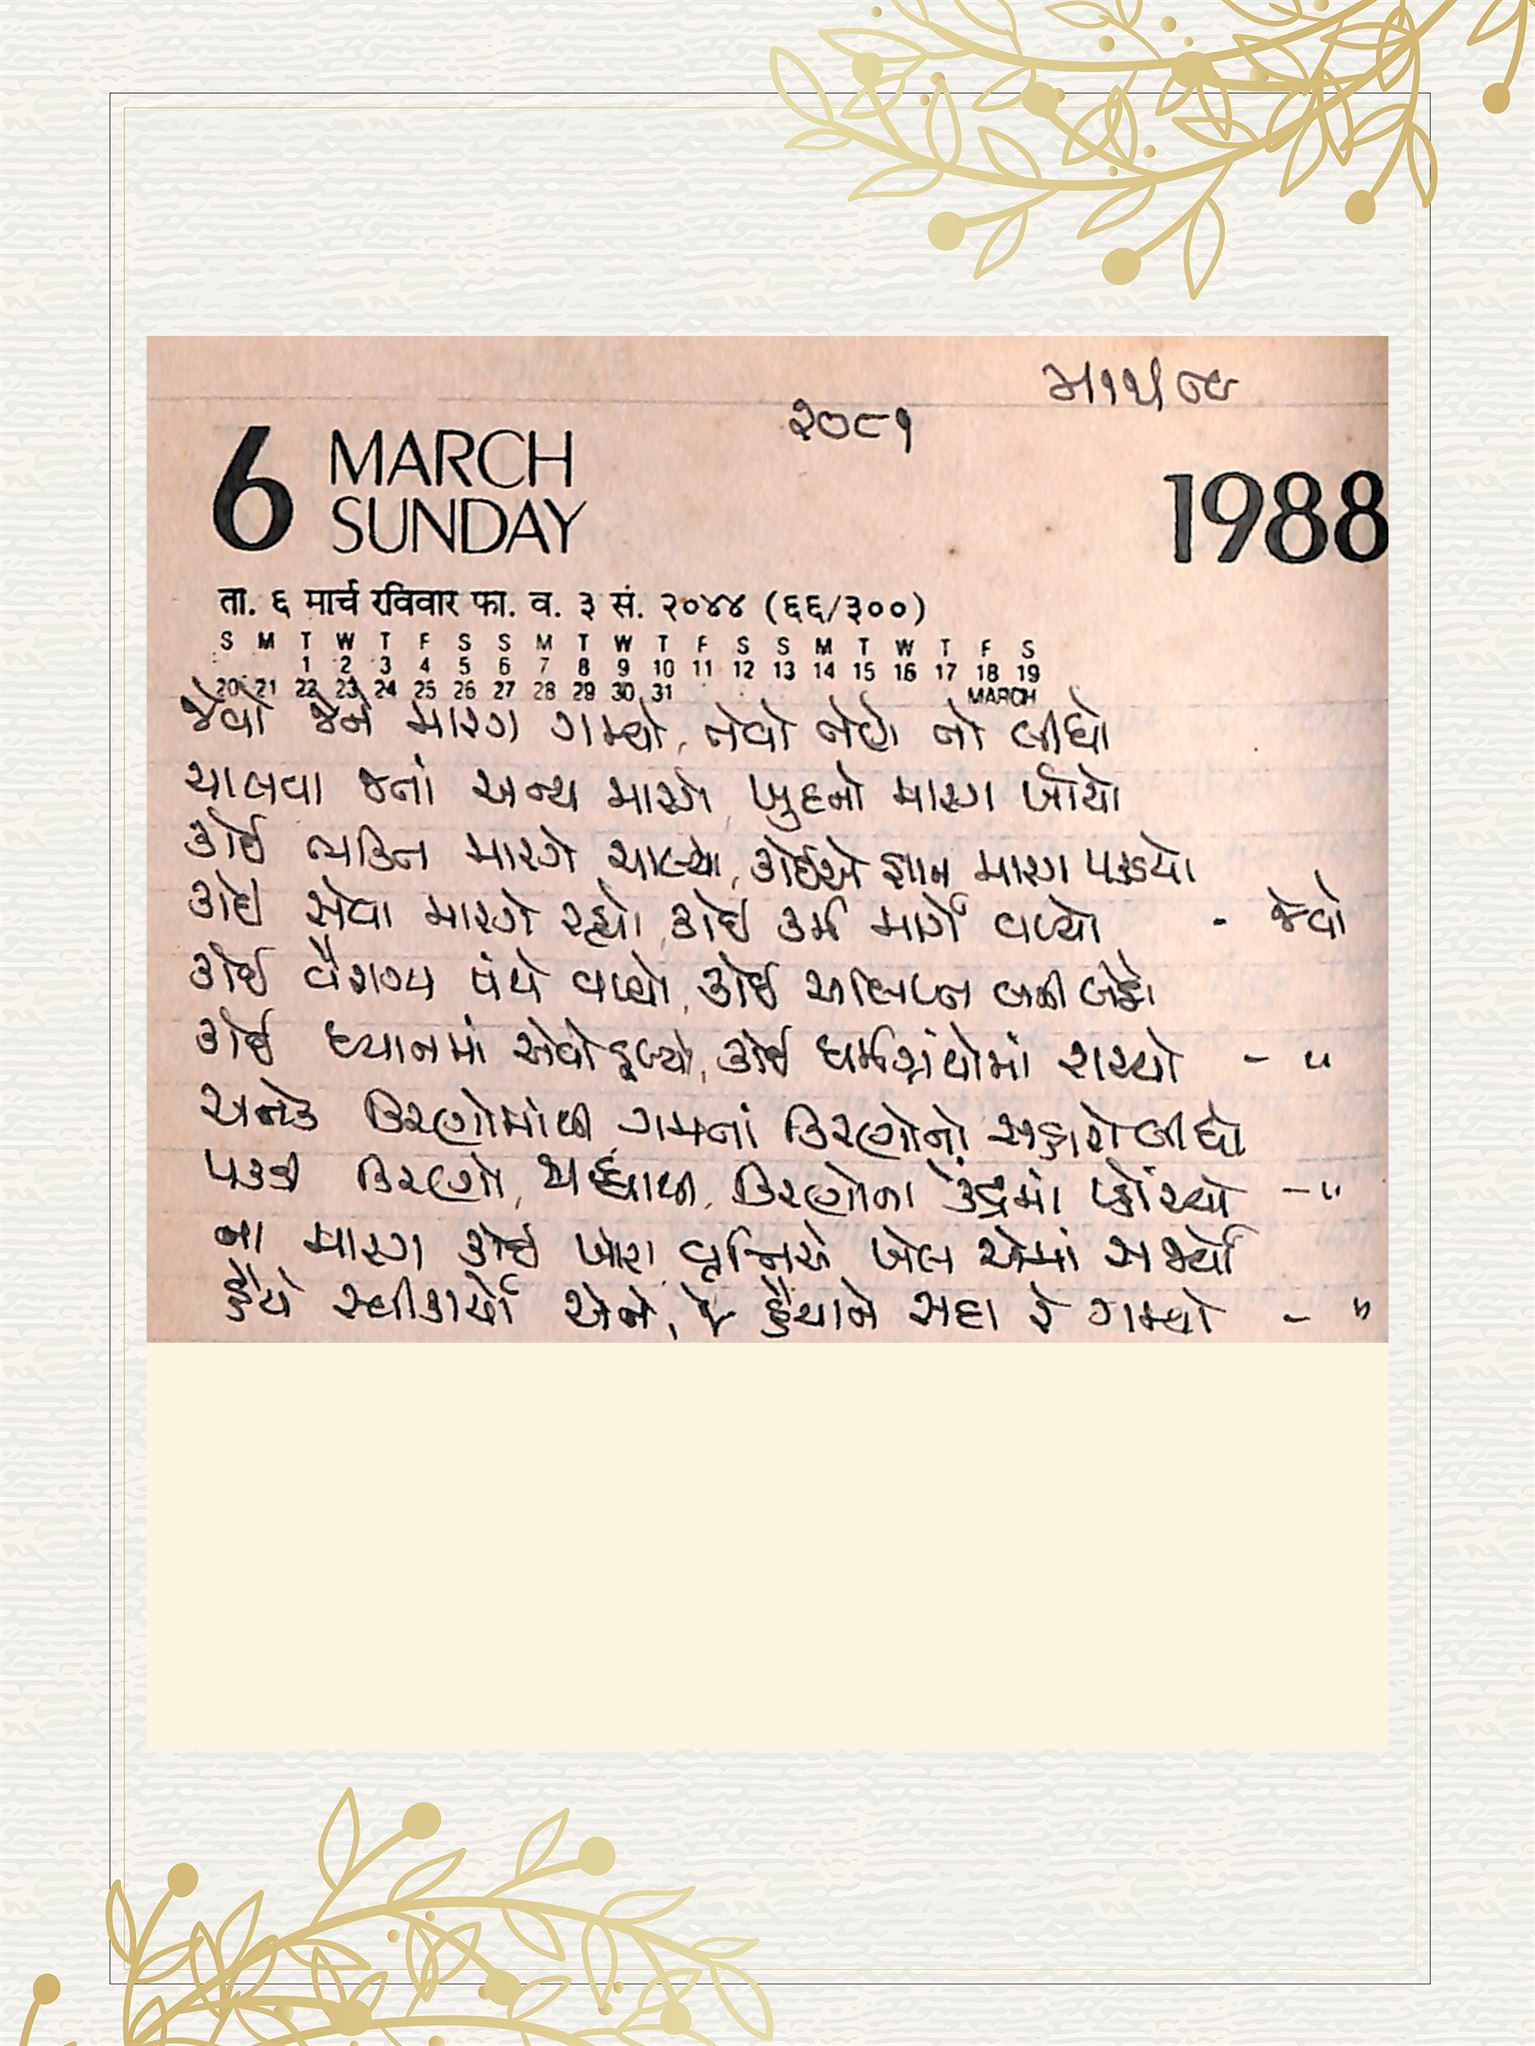 ૨૦૮૧
6 MARCH
SUNDAY
1988
ता. ६ मार्च रविवार फा. व. ३ सं. २०४४ (६६/३००)
S M T W T F S S M T W T F S S M T W T F S
1 2 3 4 5 6 7 8 9 10 11 12 13 14 15 16 17 18 19
20 21 22 23 24 25 26 27 28 29 30 31 MARCH
જેવો જેને મારગ ગમ્યો, તેવો તેણે તો લીધો
ચાલવા જતાં અન્ય મારગે ખુદનો મારગ ખોયો
કોઈ ભક્તિ મારગે ચાલ્યા, કોઈએ જ્ઞાન મારગ પકડયો
કોઈ સેવા મારગે રહ્યો, કોઈ કર્મ માર્ગે વળ્યો - જેવો
કોઈ વૈરાગ્ય પંથે વળ્યો, કોઈ અલિપ્ત બની બેઠો
કોઈ ધ્યાનમાં એવો ડૂબ્યો, કોઈ ધર્મગ્રંથોમાં રાચ્યો - "
અનેક કિરણોમાંથી ગમતાં કિરણોનો સહારો લીધો
પકડી કિરણો, શ્રદ્ધાથી, કિરણોના કેંદ્રમાં પ્હોંચ્યો - "
ના મારગ કોઈ ખોટા વૃત્તિએ ખેલ એમાં સર્જ્યો
હૈયે સ્વીકાર્યો એને, જે હૈયાને સદા રે ગમ્યો - "